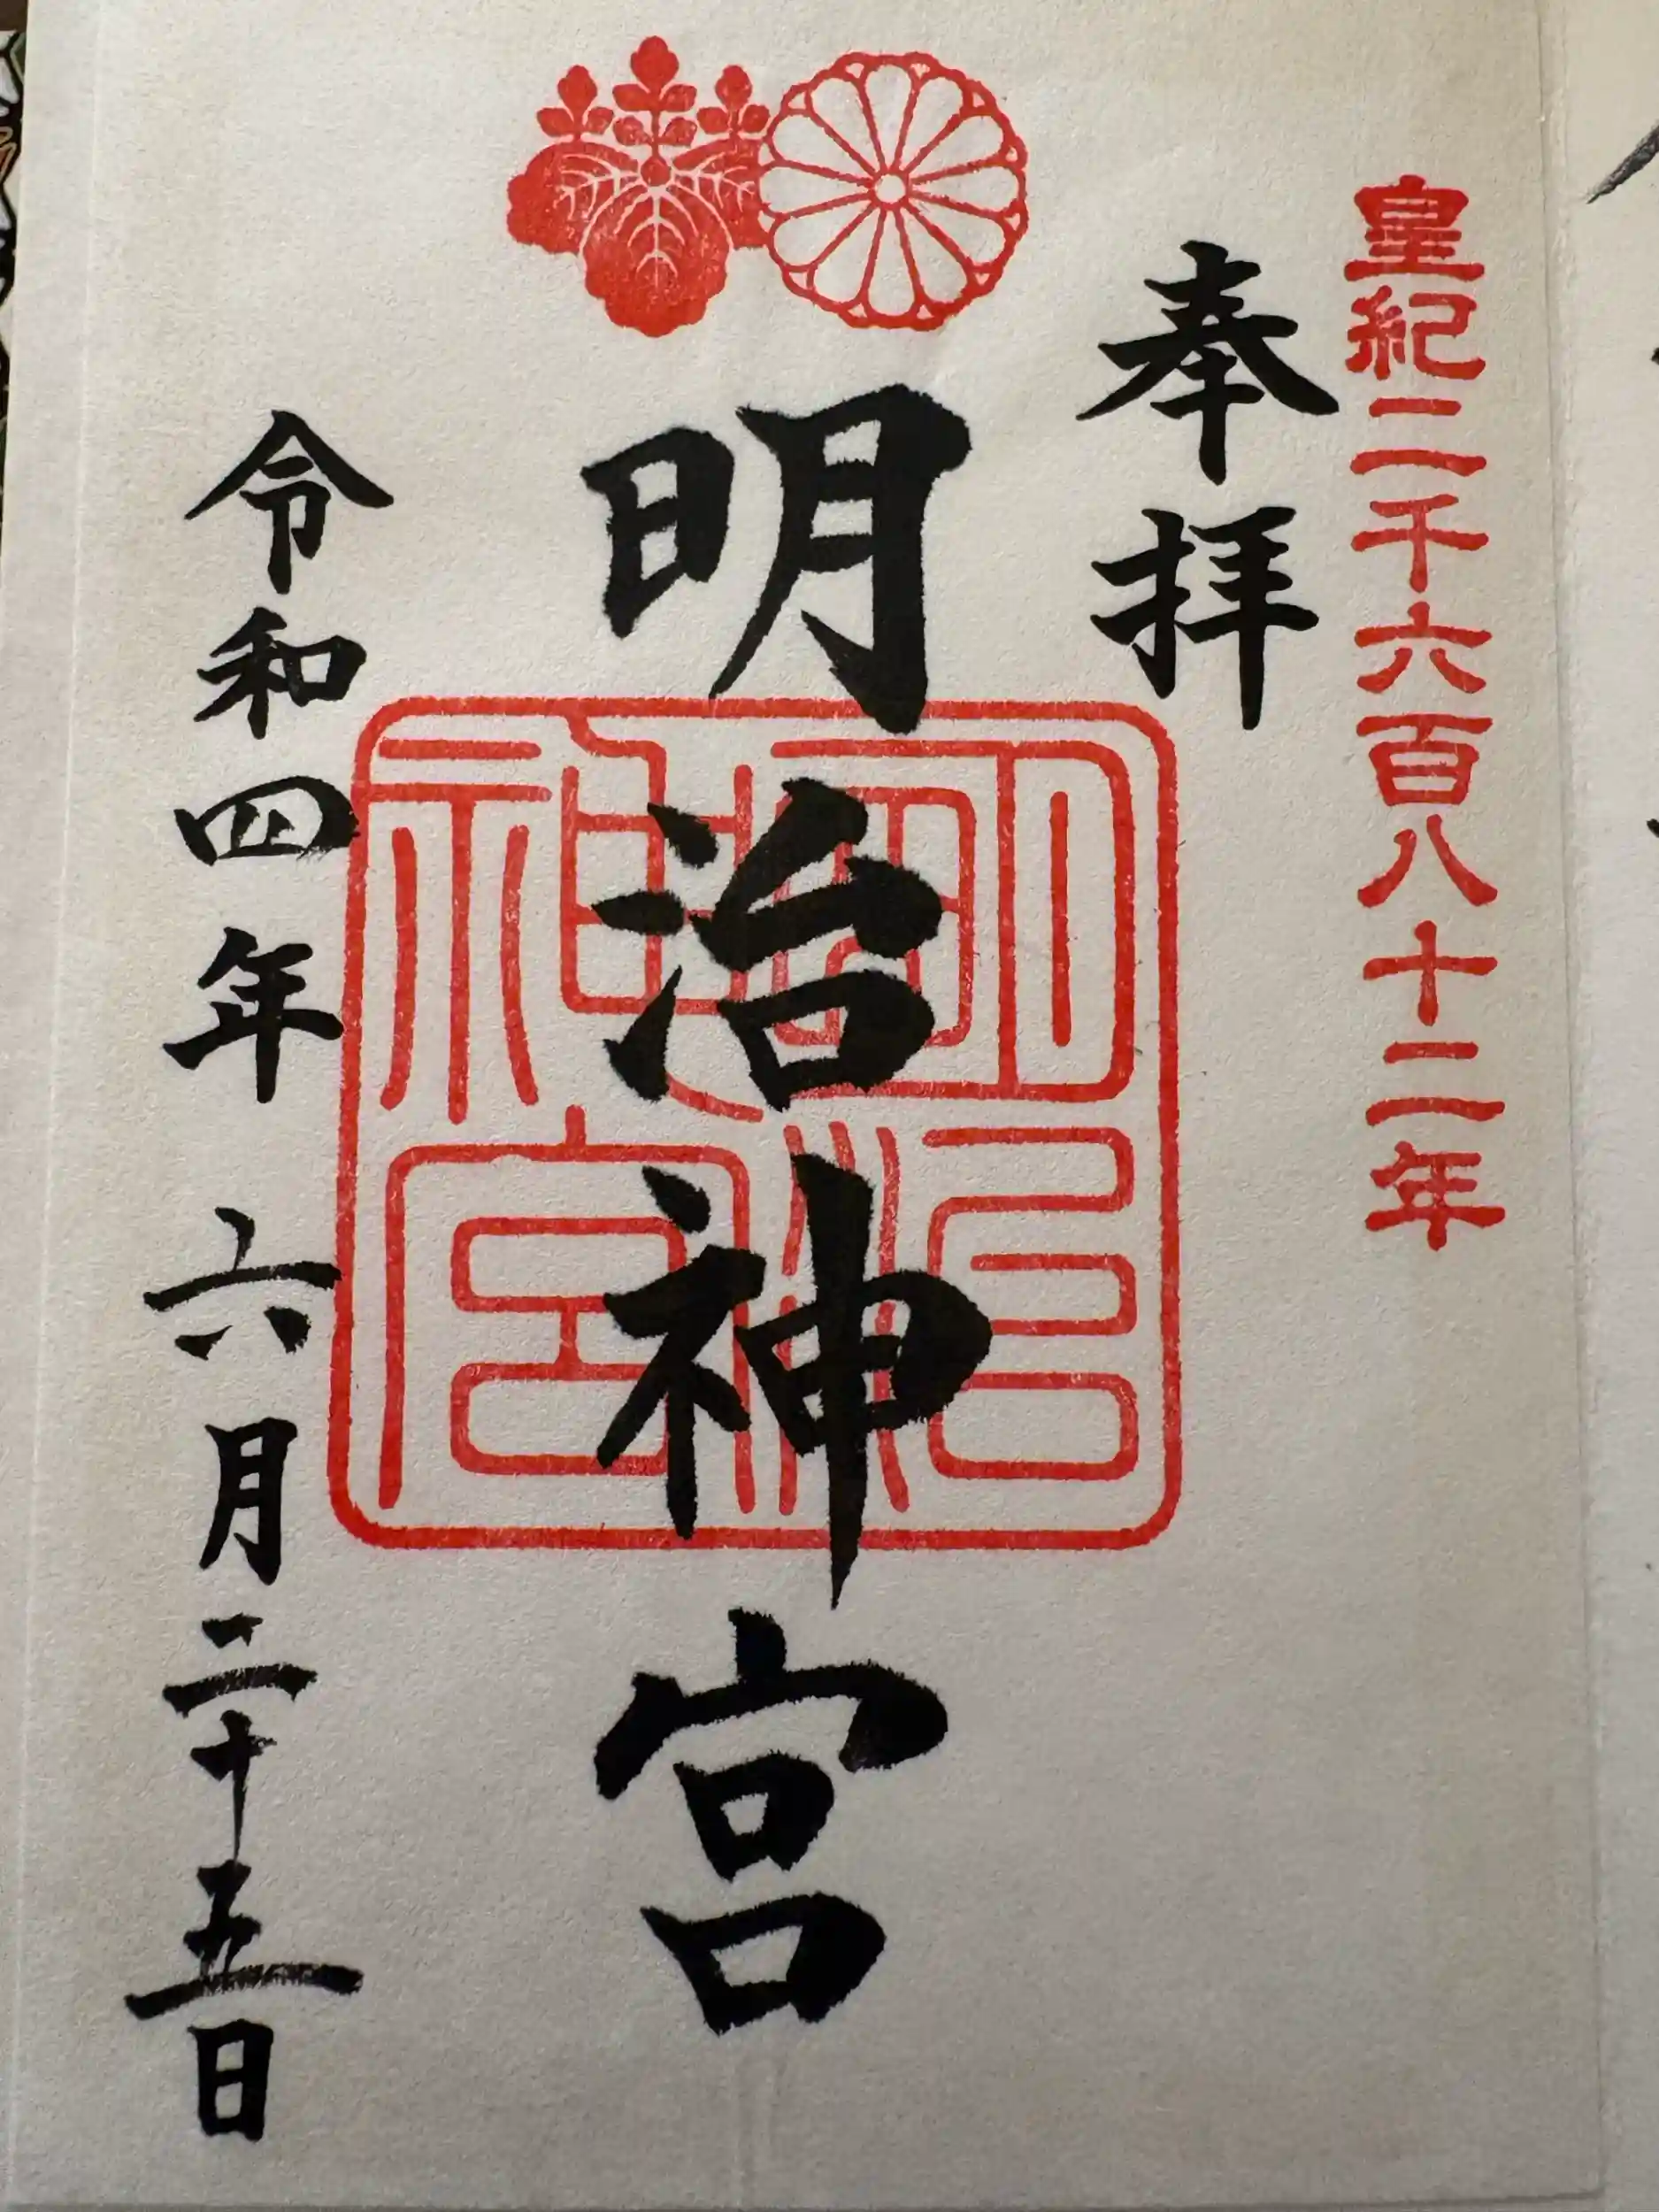 皇紀二千六百八十二年
奉拝
明治神宮
明治神宮
令和四年六月二十五日